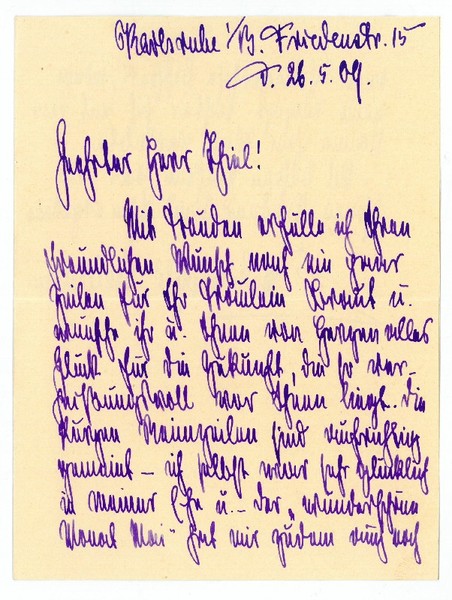 Karlsruhe i/B. Friedenstr. 15
d. 26. 5. 09.
Geehrter Herr Thiel!
Mit Freuden erfülle ich Ihren
freundlichen Wunsch nach ein paar
Zeilen für Ihr Fräulein Braut u.
wünsche ihr u. Ihnen von Herzen alles
Glück für die Zukunft, die so ver-
heißungsvoll vor Ihnen liegt. Die
kurzen Reimzeilen sind aufrichtig
gemeint – ich selbst war sehr glücklich
in meiner Ehe u. – der „wunderschöne
Monat Mai“ hat mir zudem auch noch